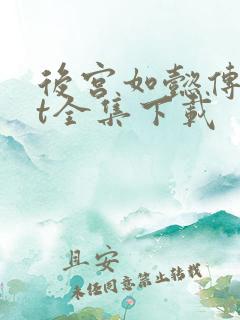 後宫如懿傳
t全集下載
且安
未经同意禁止转载